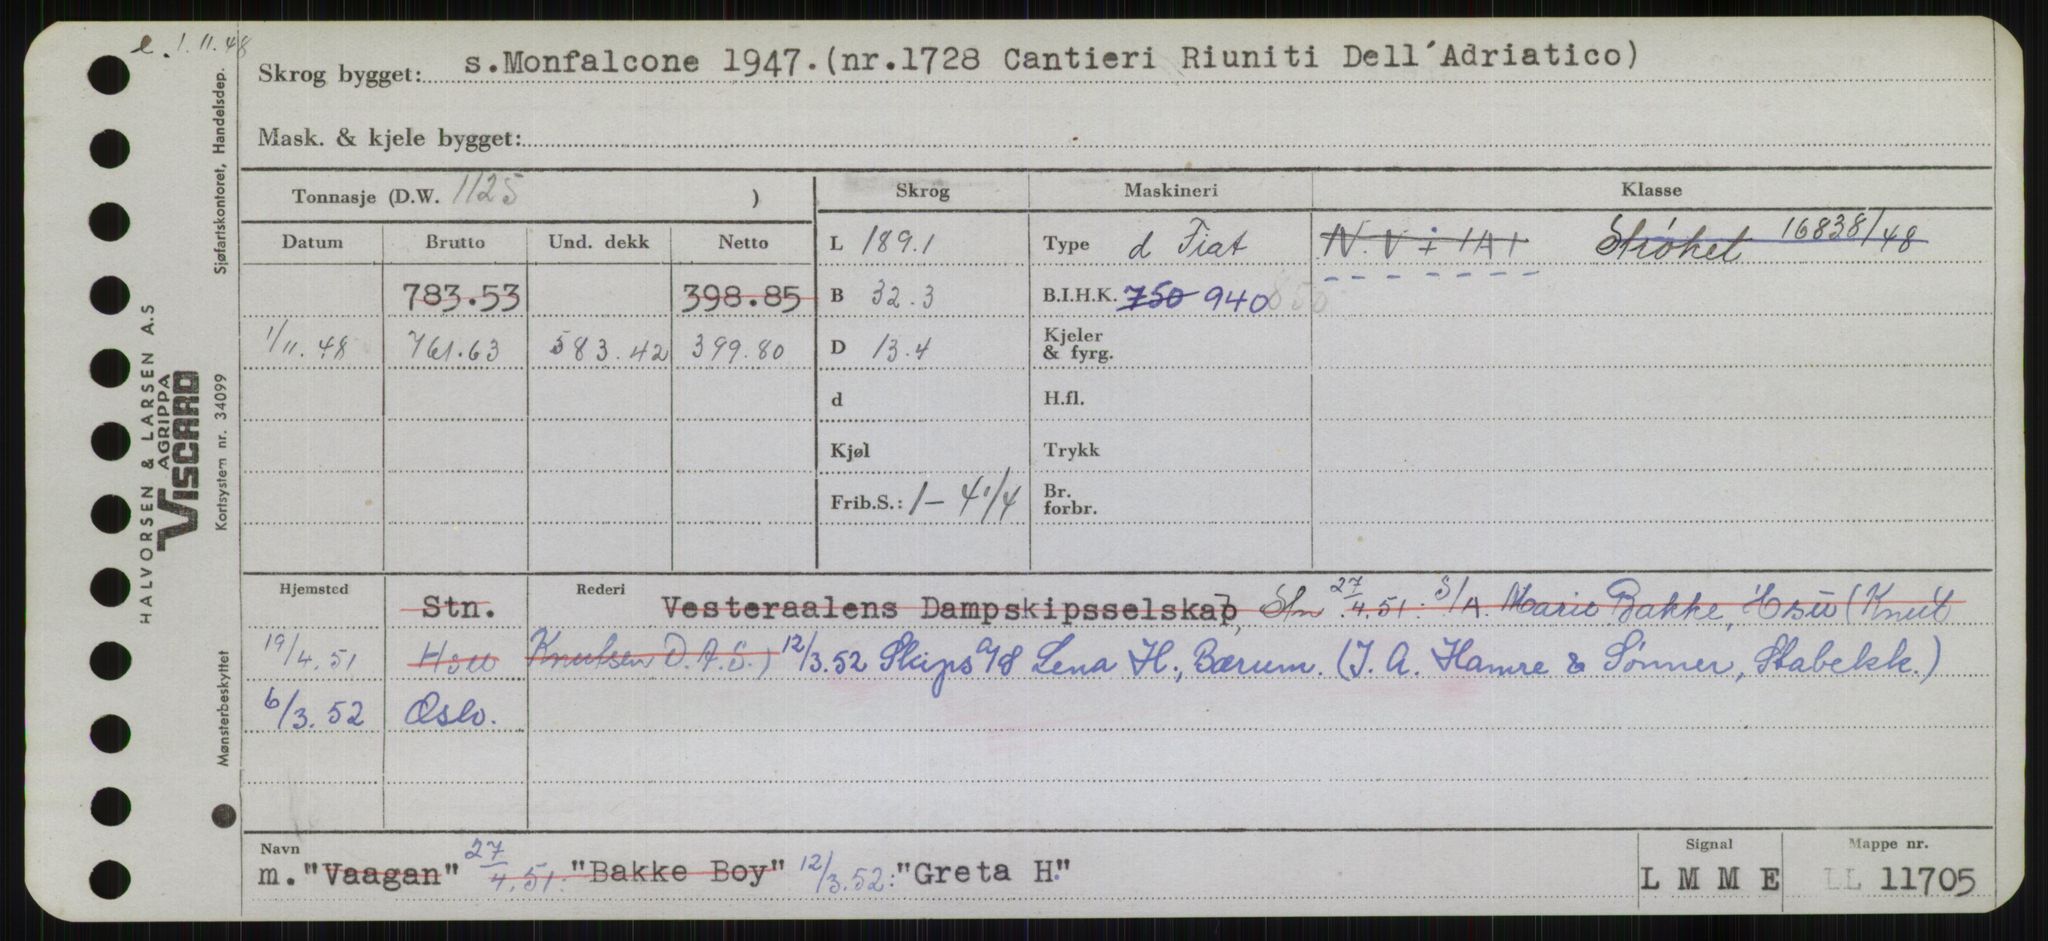 e. 1.11.48
Skrog bygget: s.Monfalcone 1947.(nr.1728 Cantieri Riuniti Dell´Adriatico)
Mask. & kjele bygget:
Tonnasje (D.W. 1125 )
Skrog Maskineri Klasse
Datum Brutto Und. dekk Netto
L 189.1 Type d Fiat N.V. + 1A1 Strøket 16838/48
783.53 398.85 B 32.3 B.I.H.K. 750 940 850
1/11.48 761.63 583.42 399.80 D 13.4 Kjeler & fyrg.
d H.fl.
Kjøl Trykk
Frib.S.: 1 – 4 1/4 Br. forbr.
Hjemsted Stn. Rederi Vesteraalens Dampskipsselskap, Stn 27/4.51: S/A. Marie Bakke, Hsu (Knut
19/4.51 Hsu Knutsen O.A.S.) 12/3.52 Skips A/S Lena H., Bærum. (J. A. Hamre & Sønner, Stabekk.)
6/3.52 Oslo.
Navn Signal Mappe nr.
m. "Vaagan" 27/4.51: "Bakke Boy" 12/3.52: "Greta H." L M M E LL 11705
HALVORSEN & LARSEN A.S
AGRIPPA
VISCARD
Mønsterbeskyttet Kortsystem nr. 34099 Sjøfartskontoret, Handelsdep.